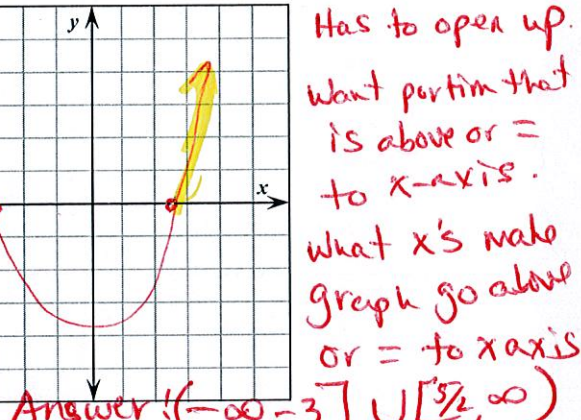 y
x
Has to open up.
Want portion that
is above or =
to x-axis.
What x's make
graph go above
or = to x axis
Answer: (-∞ -3] ∪ [5/2, ∞)